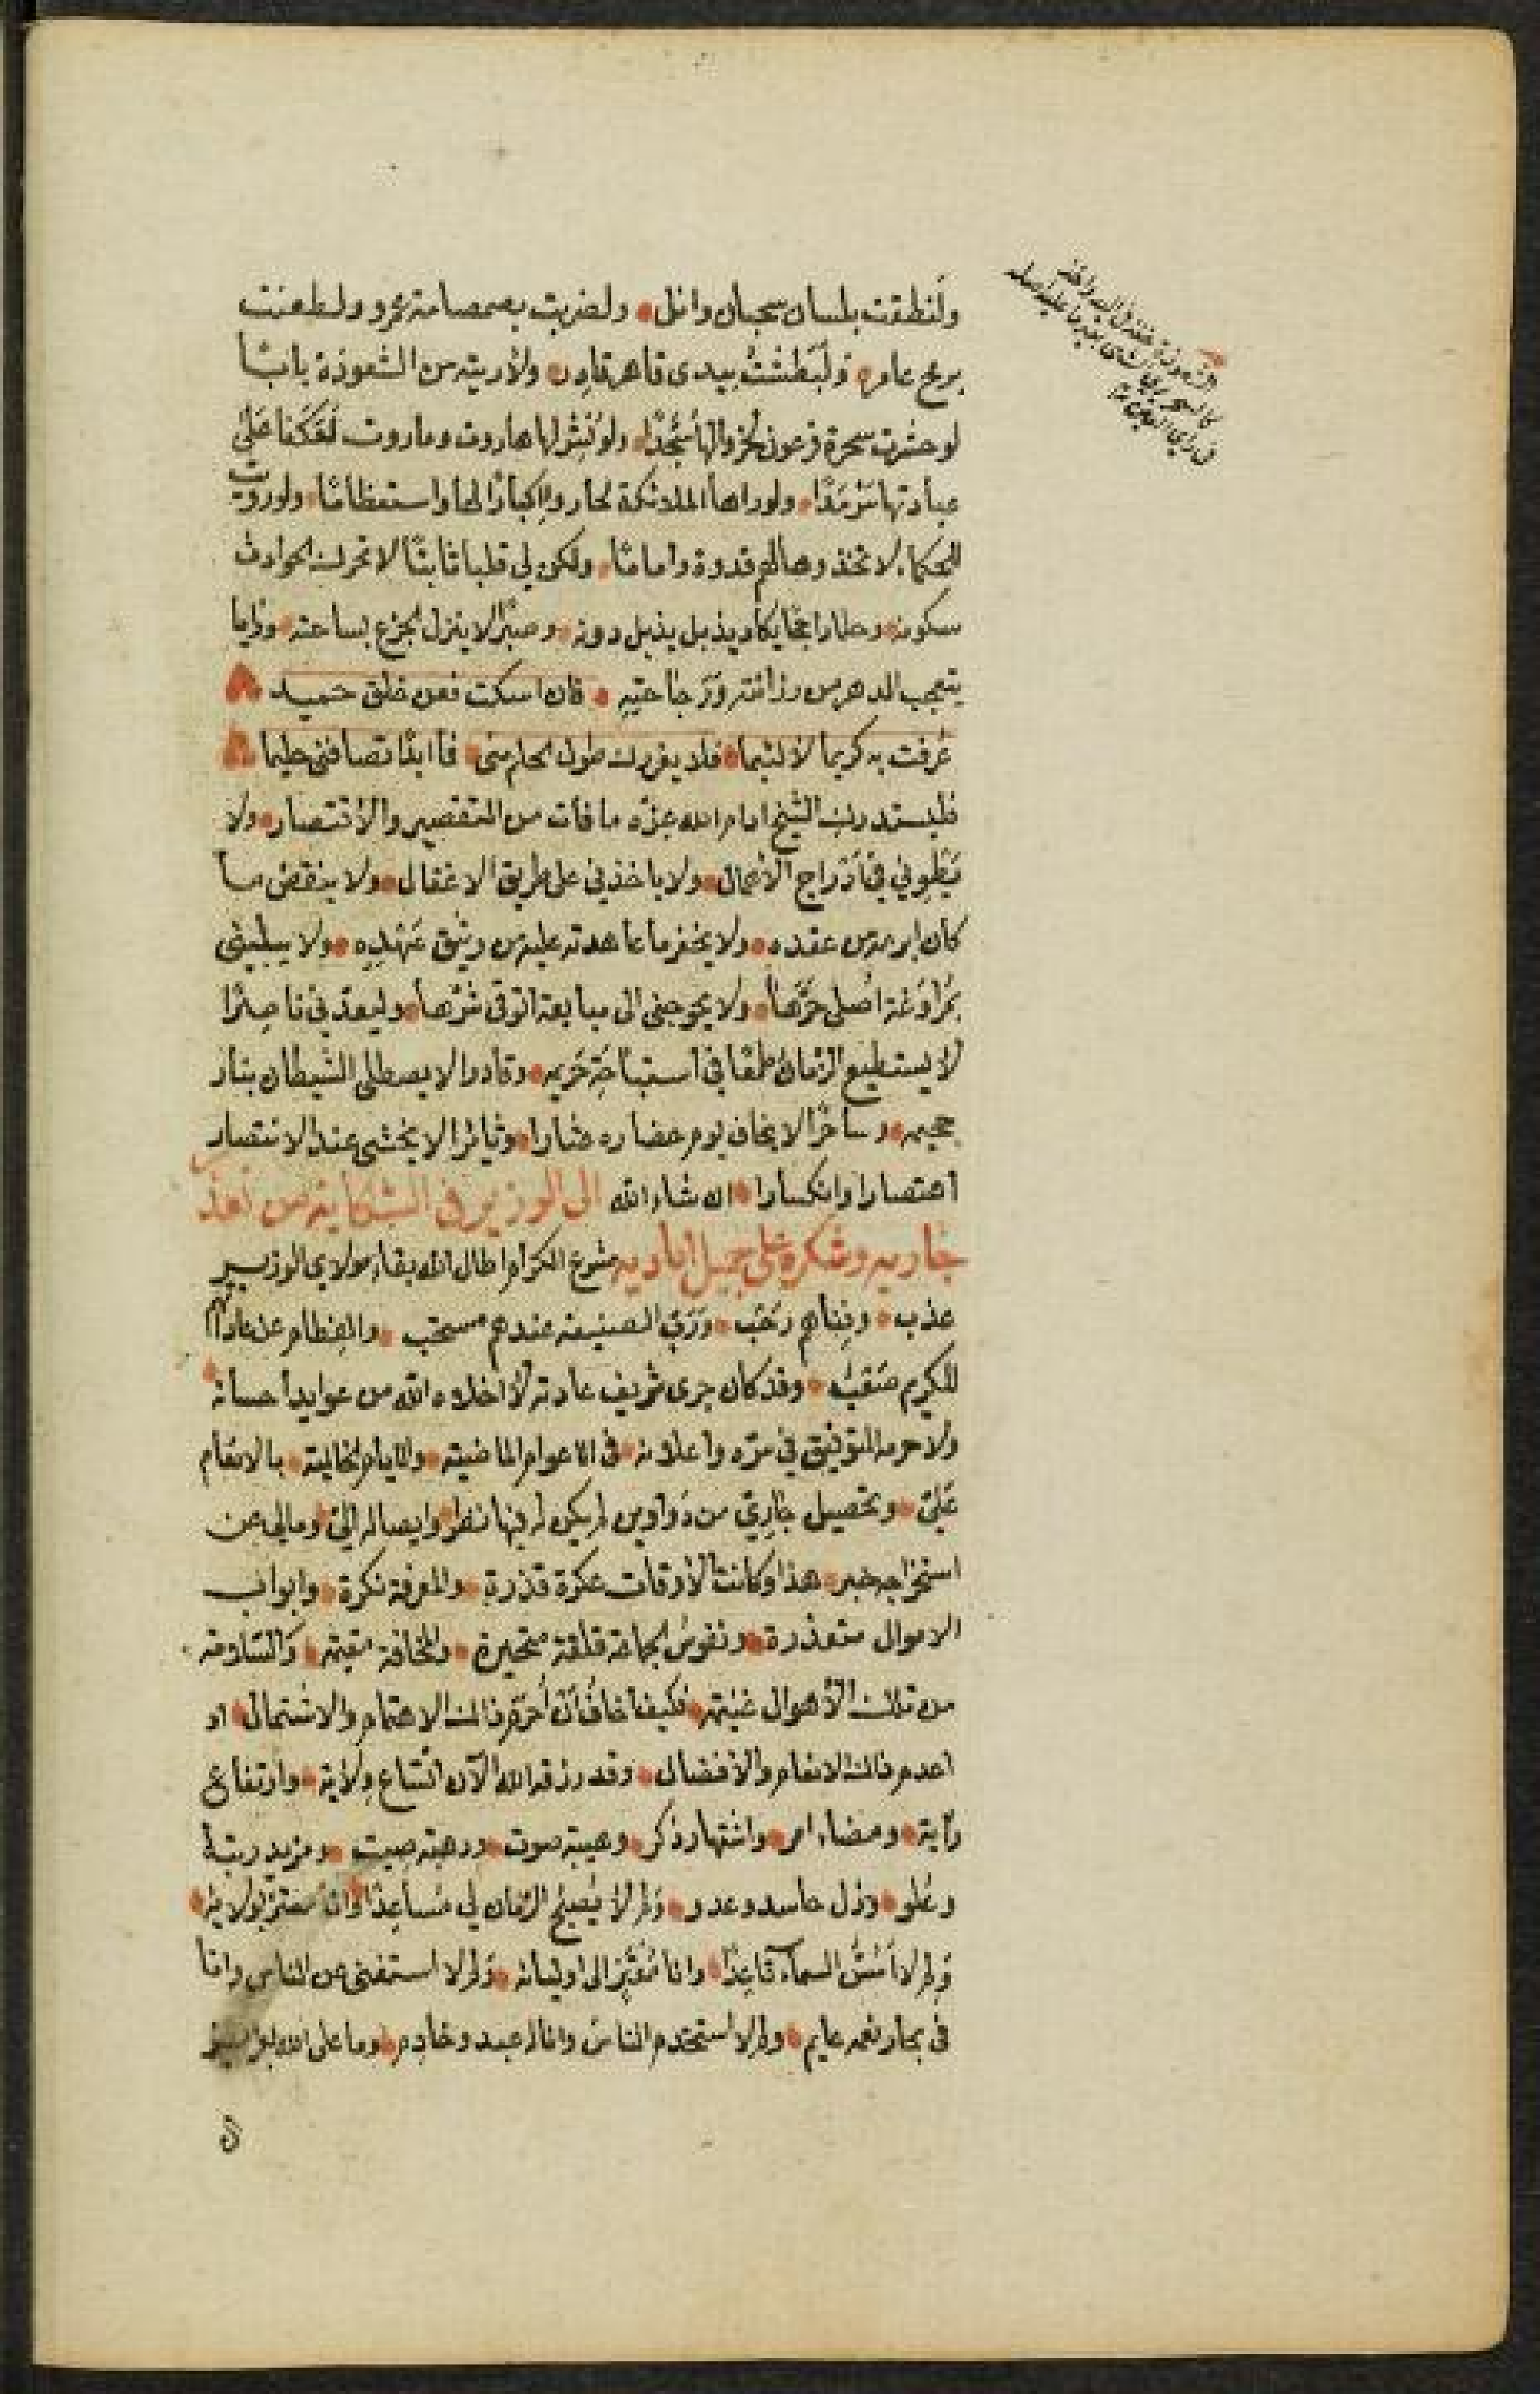 ولَنطقت بلسان سحبان وائل ولضربت بصمصامة عمرو ولطعنت
برمح عامر ولَبَطشتُ بيدى قاهر قادر ولأريته من الشعوذة بابًا
لو حشرت سحرة فرعون لخروا لها سُجّدًا ولو نُشِر لها هاروت وماروت لَعَكَفا عَلىٰ
عبادتها سَرْمَدًا ولو راها الملائكة لحاروا إكبارًا لها واستعظامًا ولو رويت
للحكماء لاتخذوها لهم قدوة وامامًا ولكن لي قلبا ثابتًا لا تحرك الحوادث
سكونه وحلما راجحًا يكاد يذبل يذبل دونه وصبرًا لا ينزل الجزع بساحته ورايا
يتعجب الدهر من رزانته ورَجاحتِهِ فان اسكت فعن خلق حميد
عُرفت به كريما لا لئيما فلا يغررك طول الحلم منى فما ابدًا تصادفنى حليما
فليستدرك الشيخ ادام الله عزّه ما فات من التقصير والاقتصار ولا
يَطْوِني في أَدْرَاج الأعمال ولا ياخذني على طريق الاغفال ولا ينقض ما
كان ابرمه من عقده ولا يخفر ما عاهدته عليه من وثيق عَهْدِه ولا يبليني
بمُراوَغة اصلى حَرَّها ولا يحوجنى الى مبايعة اتوقى شرّها وليعدّ في ناصرًا
لا يستطيع الزمان طمعًا في استباحَةِ حَريمه وقادرا لا يصطلى الشيطان بنار
جحيمه وساخرًا لا يخاف يوم حضاره عثارا وثائرا لا يخشى عند الانتصار
اعتصارا وانكسارا ان شاء الله الى الوزير فى الشكاية من تعذر
جاريه وشكره على جميل اياديه مشرع الكرام اطال الله بقاء مولاي الوزير
عذب وفِناهم رَحْب ورَبّ الصنيعة عندهم مستحب والفِطام عن عادة
الكريم صَعْبٌ وقد كان جرى شريف عادته لا اخلاه الله من عوايد احسانه
ولا حرمه التوفيق في سرّه واعلانه فى الاعوام الماضية والايام الخالية بالانعام
عَلَيّ وتحصيل جارِيّ من دَوَاوين لم يكن له فيها نظر وايصاله اليّ ومالي عن
استخراجه خبر هذا وكانت الأوقات عكرة قذرة والمعرفة نكرة وابواب
الاموال متعذرة ونفوسُ الجماعة قلقة متحيرة والمخافة مقيمة والسَّلامة
من تلك الأهوال غنيمة فكيف أخافُ أنْ أُحْرَم ذلك الاهتمام والاشتمال او
اعدم ذلك الانعام والافضال وقد رزقه الله الآن اتساع ولاية وارتفاع
رأية ومضاء امر واشتهار ذكر وهيبة صوت ورهبة صيت ومزيد رتبة
وعُلو وذل حاسد وعدو ولم لا يُصبِحُ الزمان لي مُساعِدًا وانا معتز بولايته
ولم لا اَمَسُّ السماء قاعِدًا وانا مُعْتَزٍ الى اوليائه ولم لا استغنى عن الناس وانا
فى بحار نعمه عايم ولم لا استخدم الناس وانا له عبد وخادم وما على الله